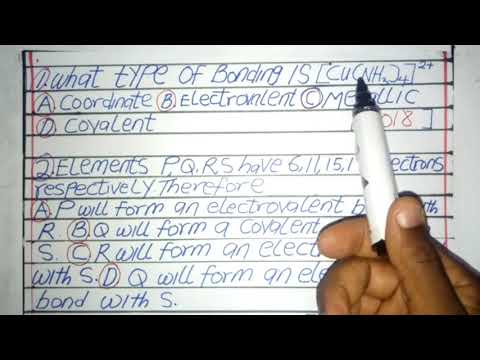 1. What type of Bonding is [Cu(NH₃)₄]²⁺
A. Coordinate B. Electrovalent C. Metallic
D. Covalent 018]
2. Elements P, Q, R, S have 6, 11, 15, 1 electrons
respectively. Therefore
A. P will form an electrovalent b with
R. B. Q will form a covalent
S. C. R will form an elect
with S. D. Q will form an ele
bond with S.